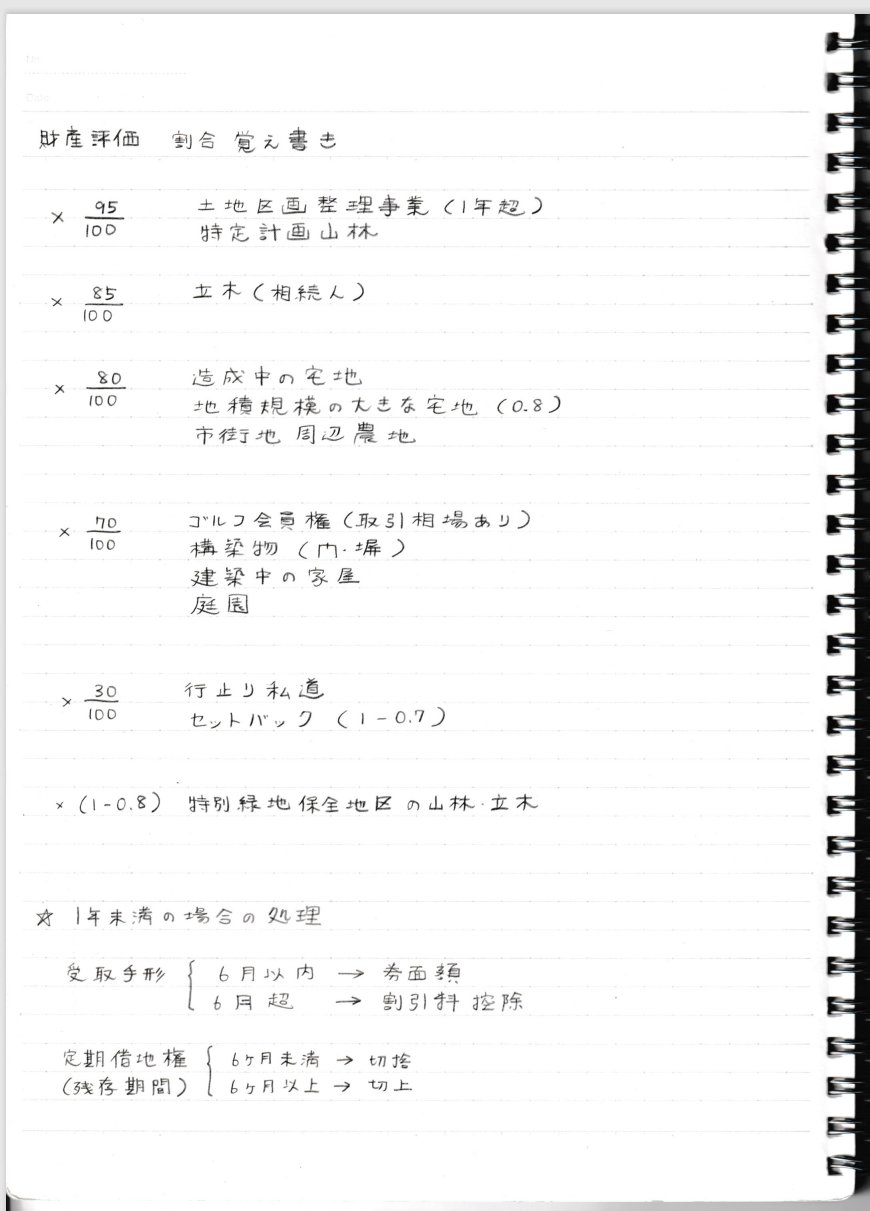 財産評価 割合 覚え書き
× 95/100 土地区画整理事業(1年超)
特定計画山林
× 85/100 立木(相続人)
× 80/100 造成中の宅地
地積規模の大きな宅地(0.8)
市街地周辺農地
× 70/100 ゴルフ会員権(取引相場あり)
構築物(門・塀)
建築中の家屋
庭園
× 30/100 行止り私道
セットバック(1-0.7)
×(1-0.8) 特別緑地保全地区の山林・立木
☆ 1年未満の場合の処理
受取手形 { 6月以内 → 券面額
6月超 → 割引料控除
定期借地権 { 6ヶ月未満 → 切捨
(残存期間) 6ヶ月以上 → 切上